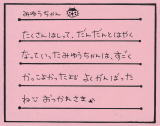 みゆうちゃん
たくさんはしって、だんだんとはやく
なっていったみゆうちゃんは、すごく
かっこよかったよ♪ よくがんばった
ね♡ おつかれさま